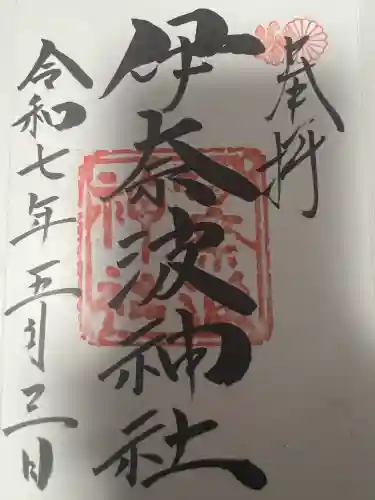 奉拝
伊奈波神社
令和七年五月三日